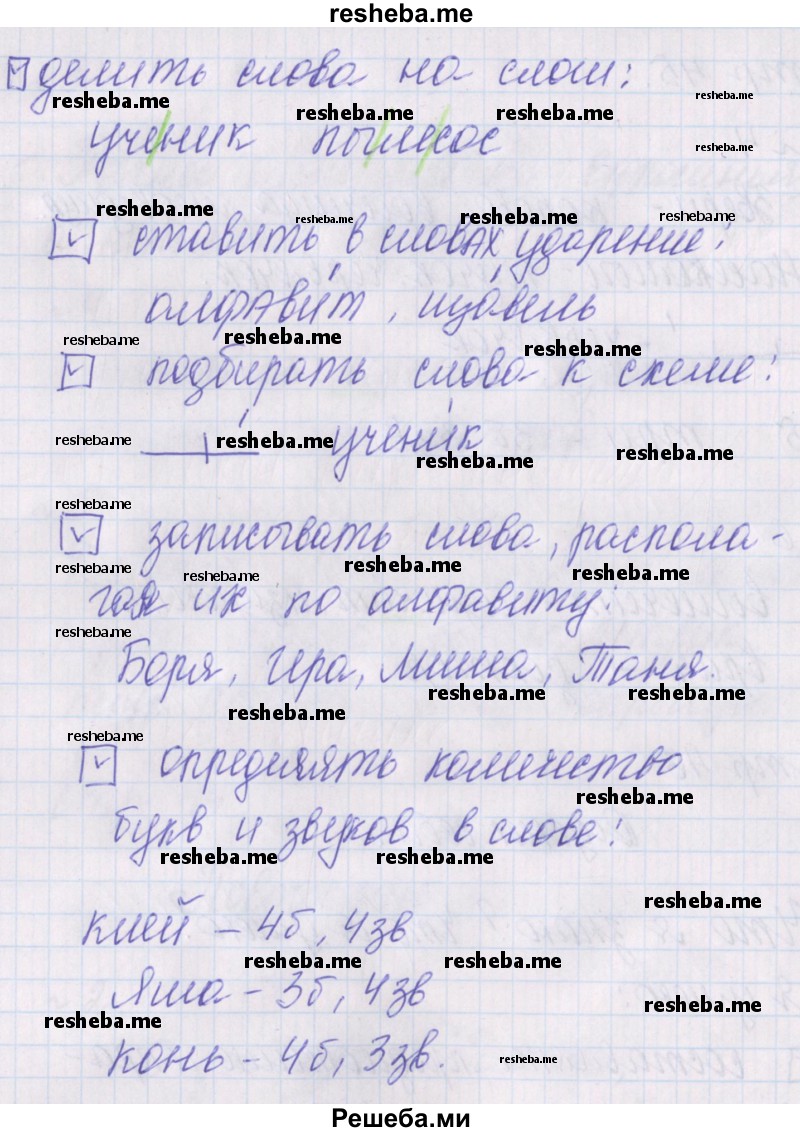 resheba.me
делить слова на слоги:
resheba.me resheba.me resheba.me resheba.me
уче/ник пы/ле/сос
resheba.me
resheba.me resheba.me resheba.me resheba.me
☑ ставить в словах ударение:
алфави́т, ща́вель
resheba.me resheba.me resheba.me
☑ подбирать слова к схеме:
resheba.me resheba.me resheba.me resheba.me
учени́к
resheba.me
☑ записывать слова, распола-
resheba.me resheba.me resheba.me resheba.me
гая их по алфавиту:
resheba.me
Боря, Гера, Миша, Таня.
resheba.me resheba.me
resheba.me
resheba.me
☑ определять количество
resheba.me
букв и звуков в слове:
resheba.me resheba.me
resheba.me
клей – 4б, 4зв
resheba.me resheba.me
Яша – 3б, 4зв
resheba.me
resheba.me
конь – 4б, 3зв.
resheba.me
Решеба.ми